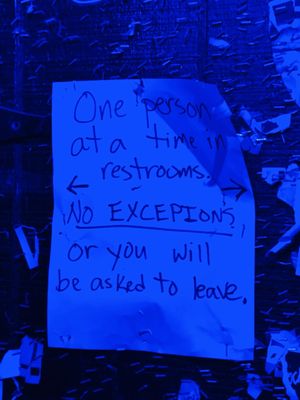 One person
at a time in
restrooms.
← →
NO EXCEPIONS
or you will
be asked to leave.